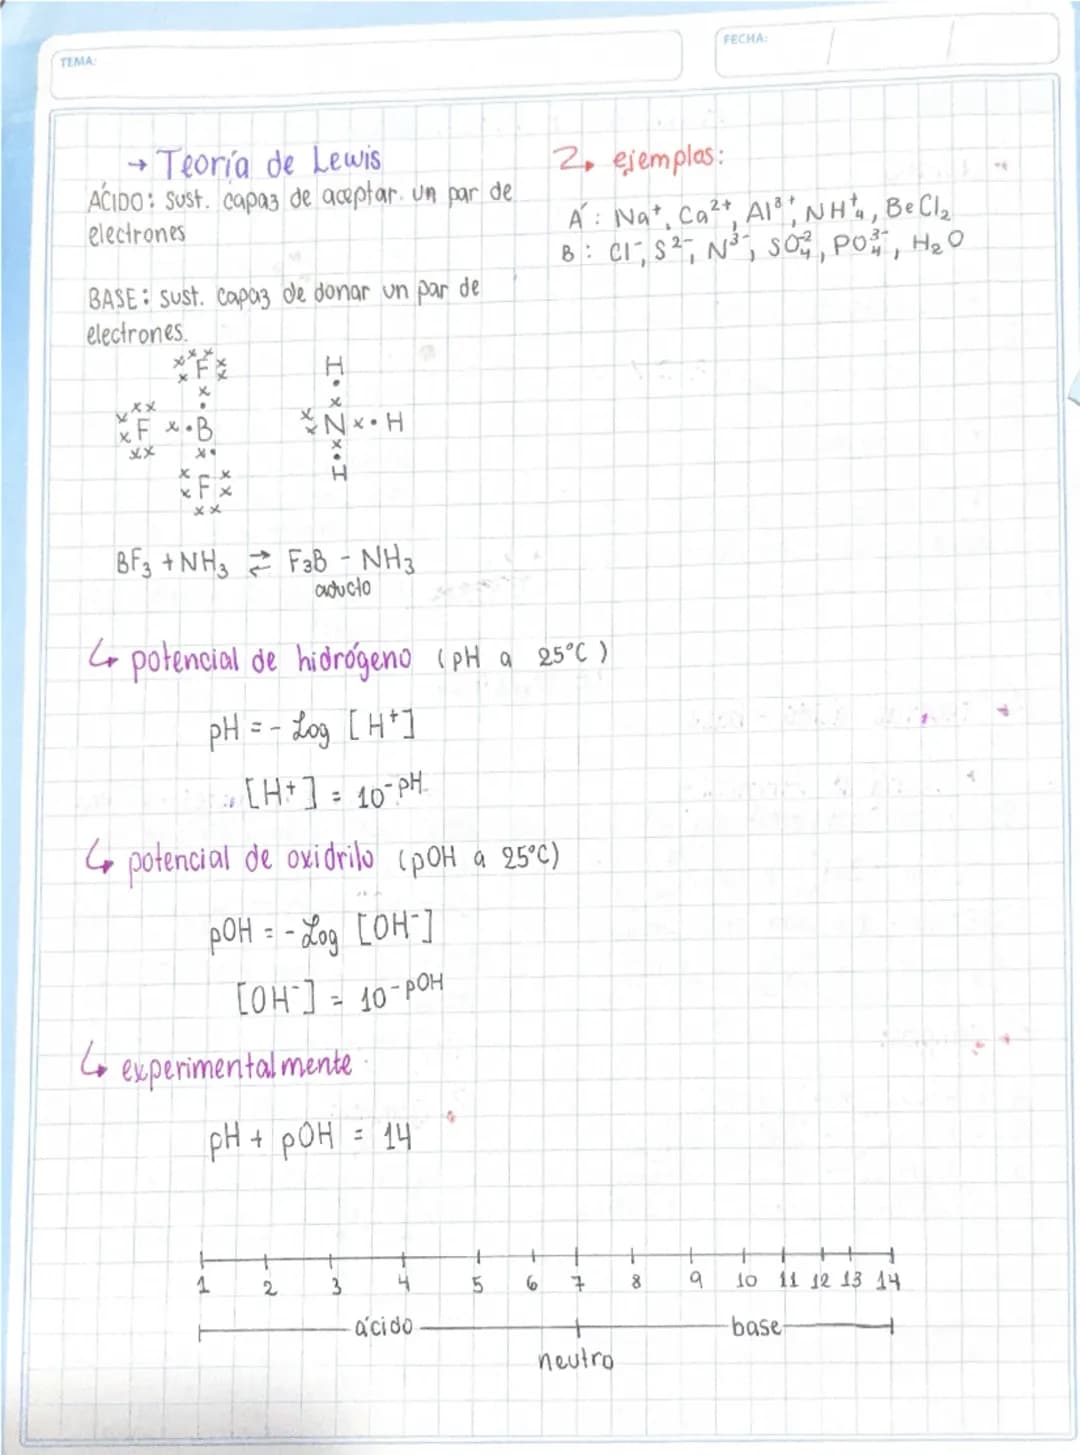 TEMA:
FECHA:
→ Teoría de Lewis
ÁCIDO: sust. capaz de aceptar un par de
electrones
BASE: sust. capaz de donar un par de
electrones.
2. ejemplos:
Á: Na⁺, Ca²⁺, Al³⁺, NH⁺₄, BeCl₂
B: Cl⁻, S²⁻, N³⁻, SO₄⁻², PO₄³⁻, H₂O
F
F B
F
H
N H
H
BF₃ + NH₃ ⇄ F₃B - NH₃
aducto
↳ potencial de hidrógeno (pH a 25°C)
pH = - Log [H⁺]
[H⁺] = 10⁻ᵖᴴ
↳ potencial de oxidrilo (pOH a 25°C)
pOH = - Log [OH⁻]
[OH⁻] = 10⁻ᵖᴼᴴ
↳ experimentalmente
pH + pOH = 14
1 2 3 4 5 6 7 8 9 10 11 12 13 14
ácido base
neutro